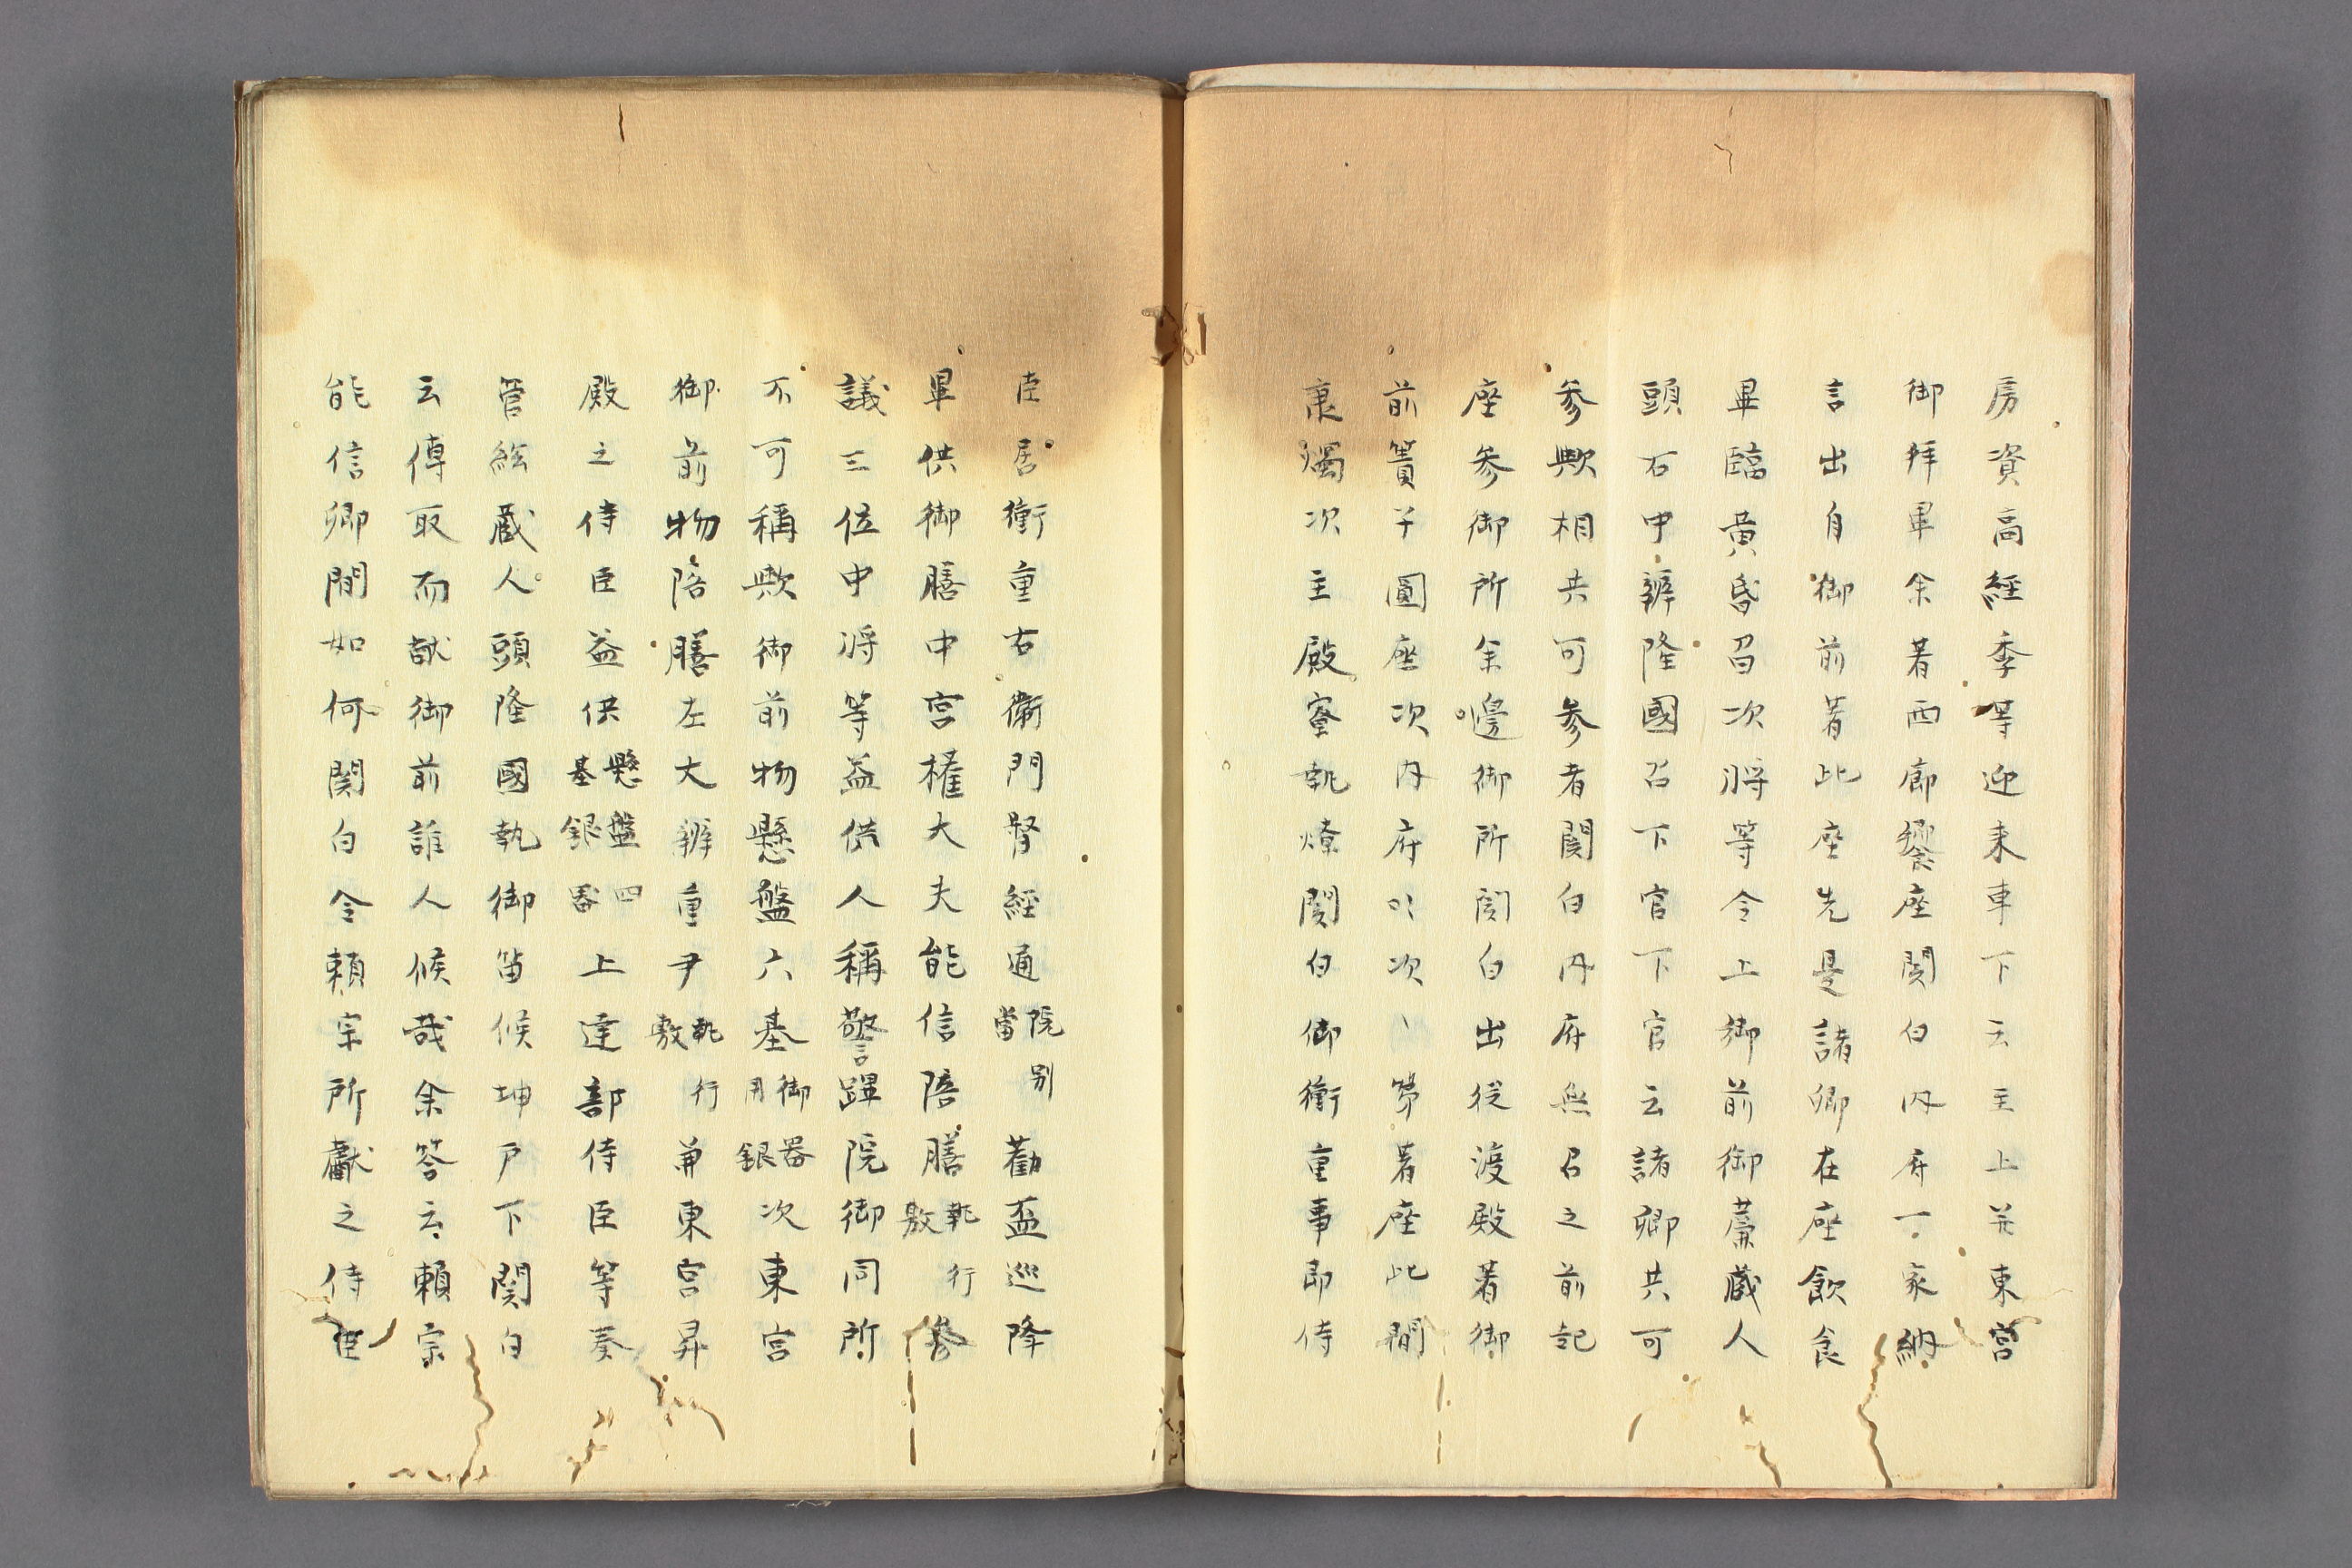 房資高経季等迎来車下云主上并東宮
御拝畢余著西廊饗座関白内府一家納
言出自御前著此座先是諸卿在座飲食
畢臨黄昏召次将等令上御前御簾蔵人
頭右中辨隆國召下官下官云諸卿共可
参歟相共可参者関白内府無召之前起
座参御所余邊御所関白出従渡殿著御
前簀子圓座次内府以次〻第著座此間
秉燭次主殿寮執燎関白御衝重事即侍
臣居衝重右衛門督経通院別當勸盃巡降
畢供御膳中宮權大夫能信陪膳執行敷参
議三位中将等益供人稱警蹕院御同所
不可稱歟御前物懸盤六基御器用銀次東宮
御前物陪膳左大辨重尹執行敷兼東宮昇
殿之侍臣益供懸盤四基銀器上達部侍臣等奏
管絃蔵人頭隆國執御笛候坤戸下関白
云傳取而献御前誰人候哉余答云頼宗
能信卿間如何関白令頼宗所獻之侍臣